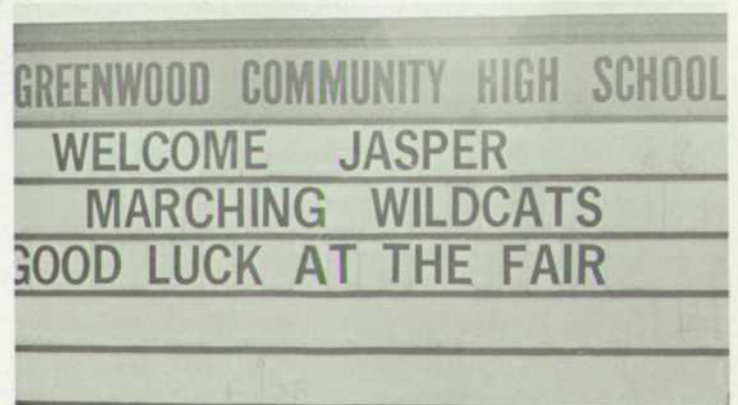 GREENWOOD COMMUNITY HIGH SCHOOL
WELCOME JASPER
MARCHING WILDCATS
GOOD LUCK AT THE FAIR